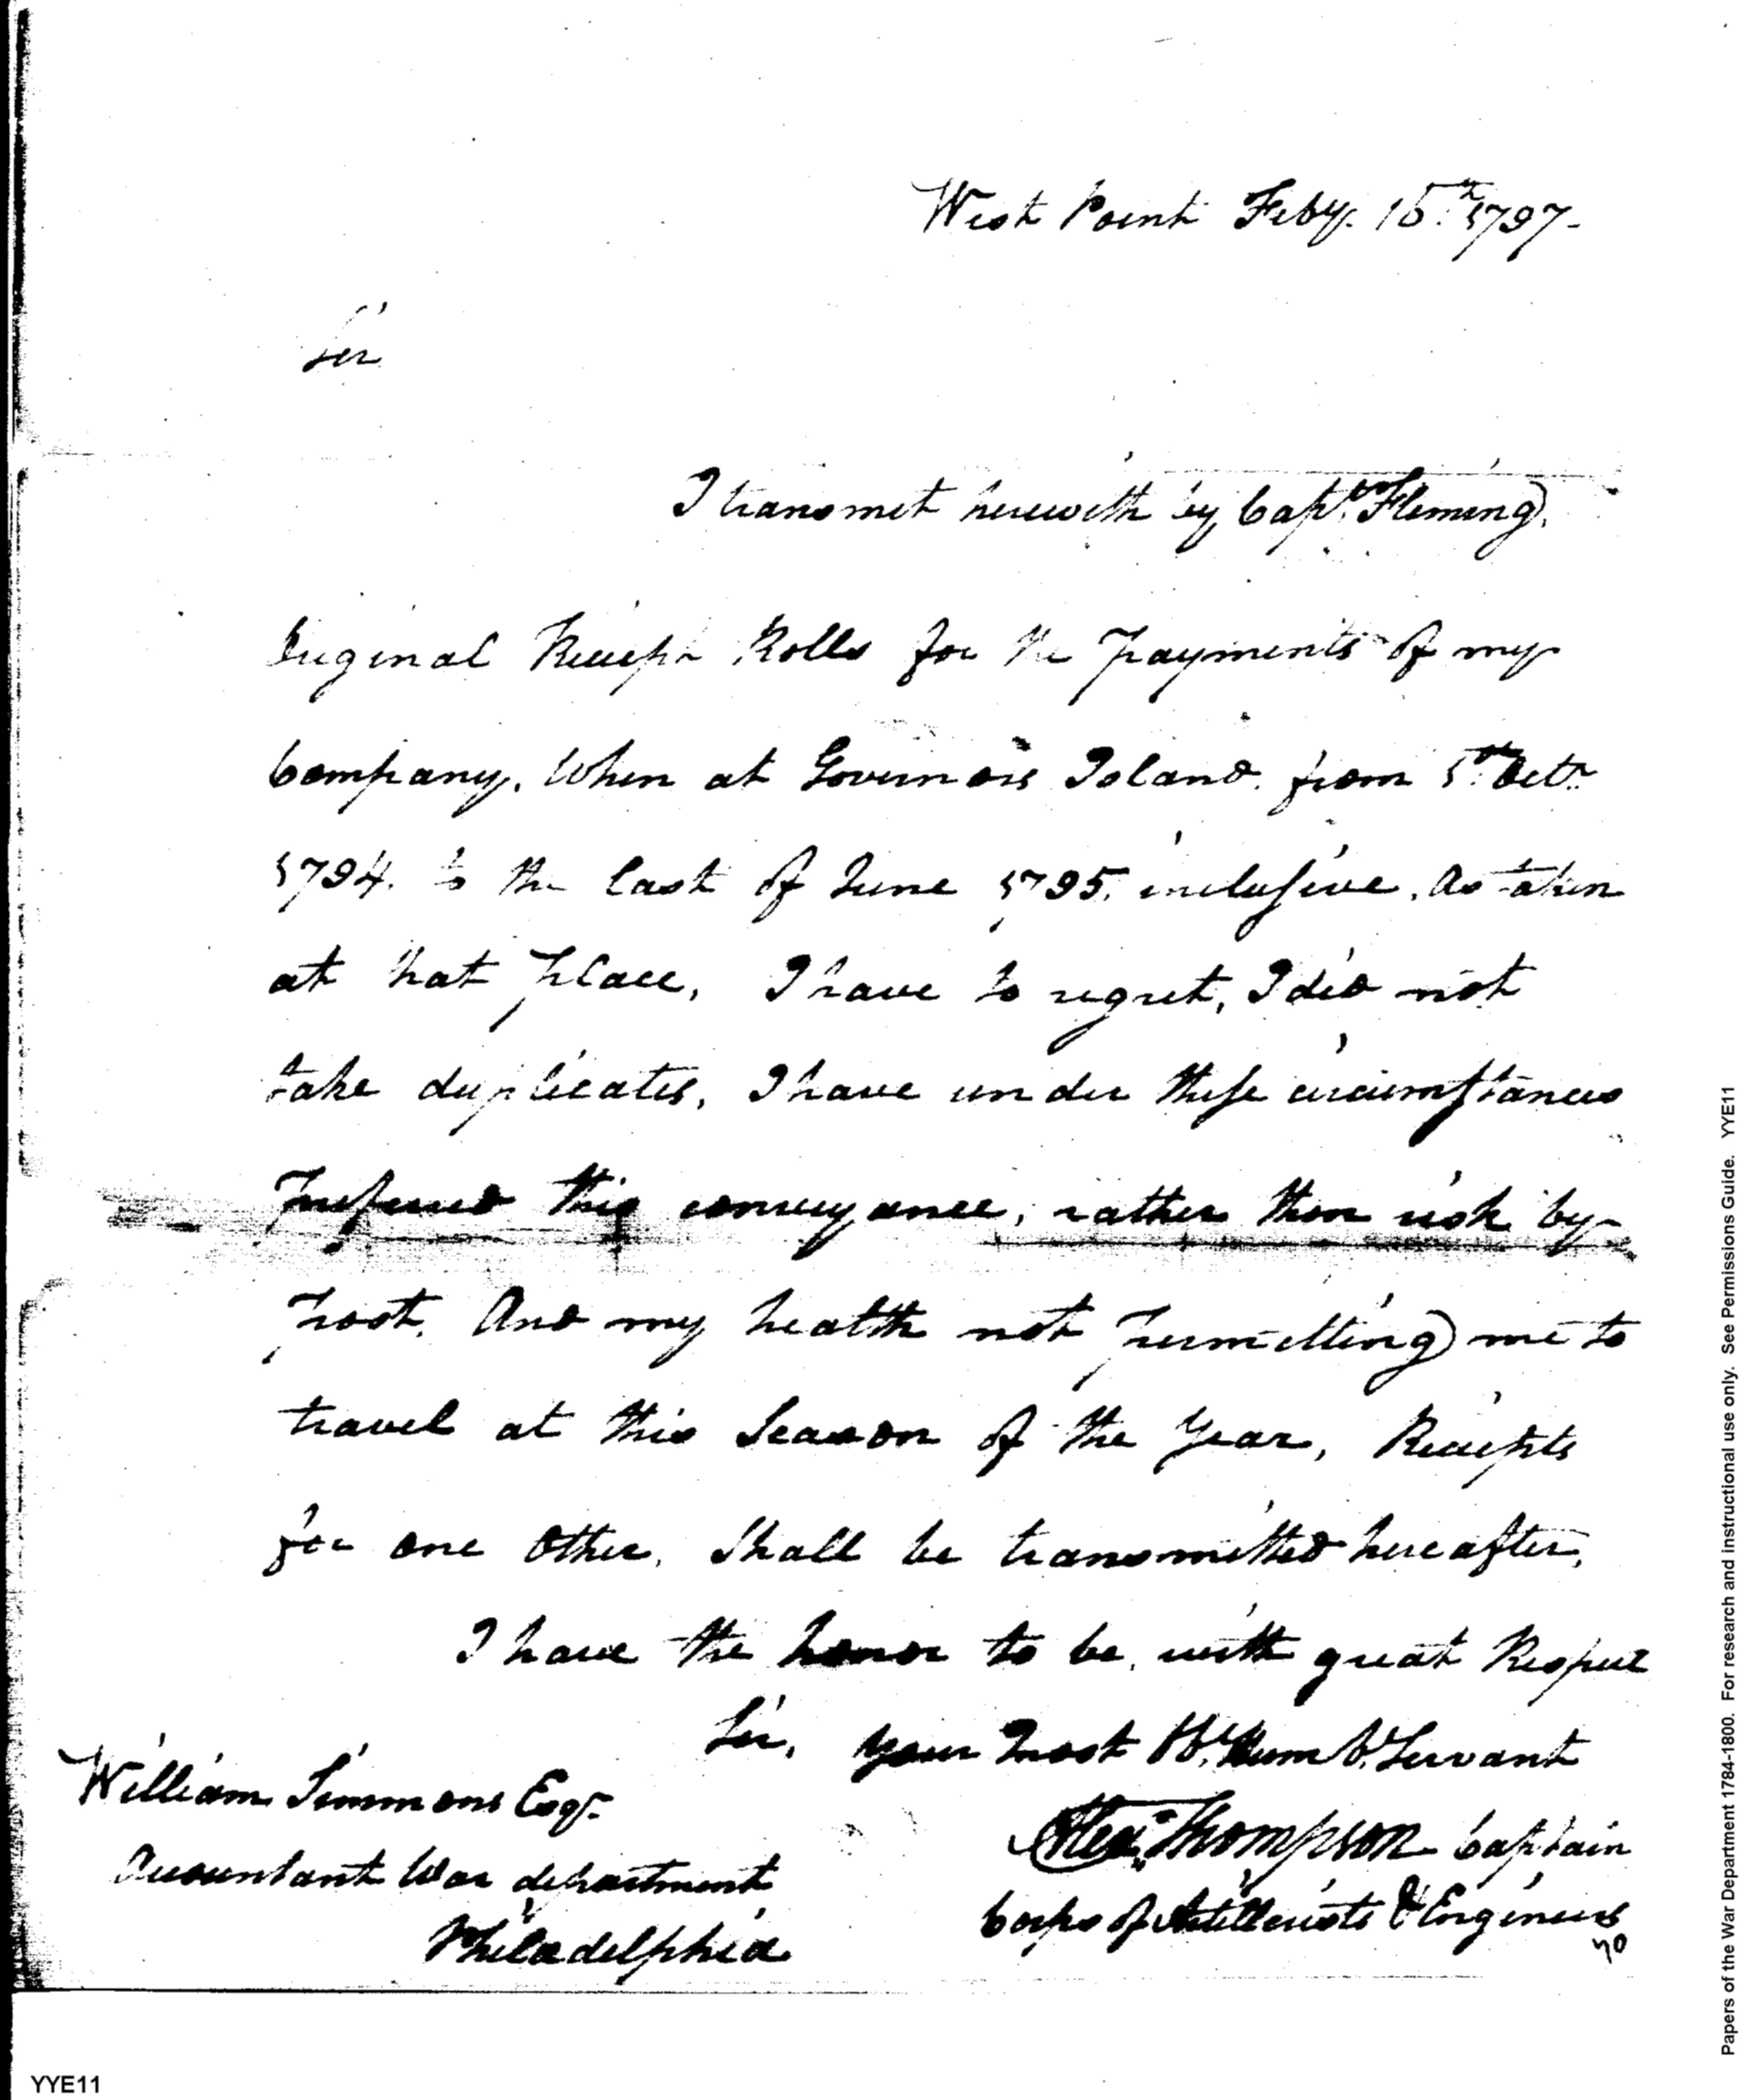 West Point Feby. 15th 1797-
Sir
I transmit herewith by Capt Fleming
Original Receipt Rolls for the payments of my
Company, When at Governors Island from 1st Octr
1794. to the last of June 1795, inclusive, as taken
at that place, I have to regret, I did not
take duplicates, I have under these circumstances
prefered this conveyance, rather than risk by
post. And my health not permitting me to
travel at this Season of the Year, Receipts
for one other, Shall be transmitted hereafter,
I have the honor to be, with great Respect
Sir, your most Ob. Humb. Servant
William Simmons Esqr.
Alexr. Thompson Captain
Accountant War department
Corps of Artillerists & Engineers
Philadelphia
70
Papers of the War Department 1784-1800. For research and instructional use only. See Permissions Guide. YYE11
YYE11